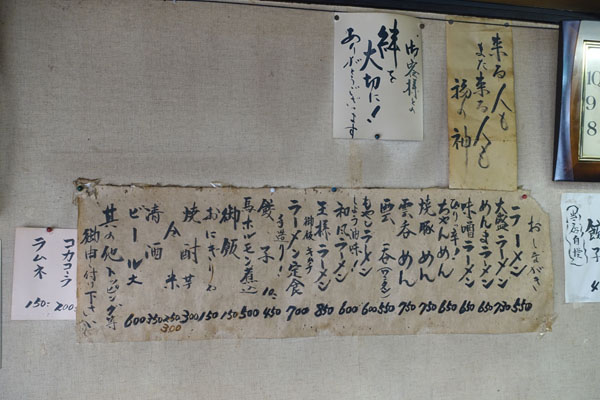 御客様との
絆を
大切に!
ありがとうございます
来る人も
また来る人も
福の神
おしながき
ラーメン 550
大盛ラーメン
めんまラーメン 650
味噌ラーメン 650
ぴり辛!
ちゃんめん 650
焼豚めん 750
雲呑めん 750
雲呑 550
もやしラーメン 600
しょうゆ味!
和風ラーメン 600
王様ラーメン 850
御飯 キムチ
ラーメン定食 700
手造り!
餃子 450
馬ホルモン煮込 500
御飯 150
おにぎり 150
焼酎 芋 300
米
300
清酒 350
ビール大 600
其の他トッピング等
御申付け下さいませ
コカコーラ 200
ラムネ 150
餃子
10
9
8